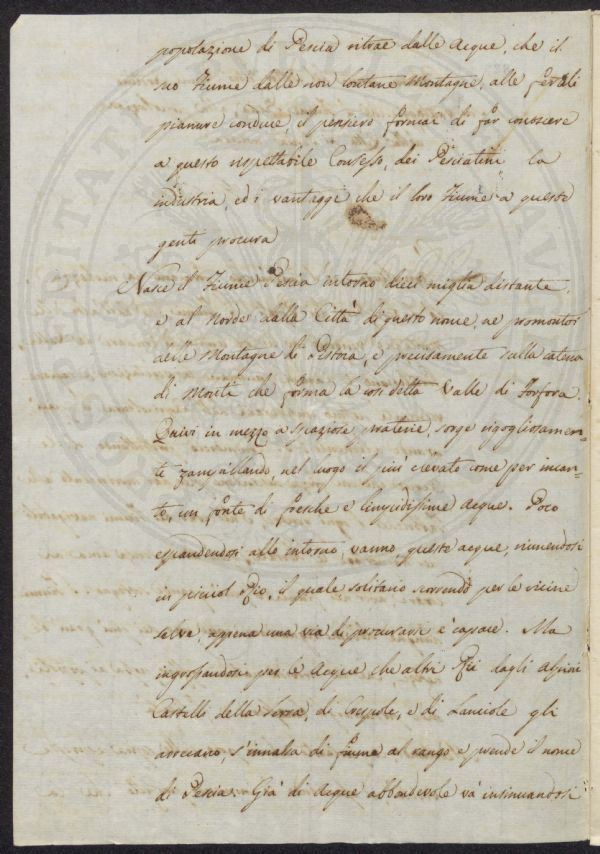 popolazione di Pescia ritrae dalle Acque, che il
suo Fiume dalle non lontane Montagne, alle fertili
pianure conduce, il pensiero formai di far conoscere
a questo rispettabile Consesso, dei Pesciatini la
industria, ed i vantaggi che il loro Fiume a queste
genti procura
Nasce il Fiume Pescia intorno dieci miglia distante,
e al Norde dalla Città di questo nome, ne promontori
delle Montagne di Pistoia, e precisamente sulla catena
di Monti che forma la così detta Valle di Forfora.
Quivi in mezzo a spaziose praterie, sorge rigogliosamen-
te zampillando, nel luogo il più elevato come per incan-
to, un fonte di fresche e limpidissime acque. Poco
espandendosi allo intorno, vanno, queste acque, riunendosi
in picciol Rio, il quale solitario scorrendo per le vicine
selve, appena una via di procurarsi è capace. Ma
ingrossandosi per le Acque che altri Rii dagli
Castelli della Serra, di Crespole, e di Lanciole gli
arrecano, s'innalza di fiume al rango e prende il nome
di Pescia. Già di Acque abbondevole và insinuandosi